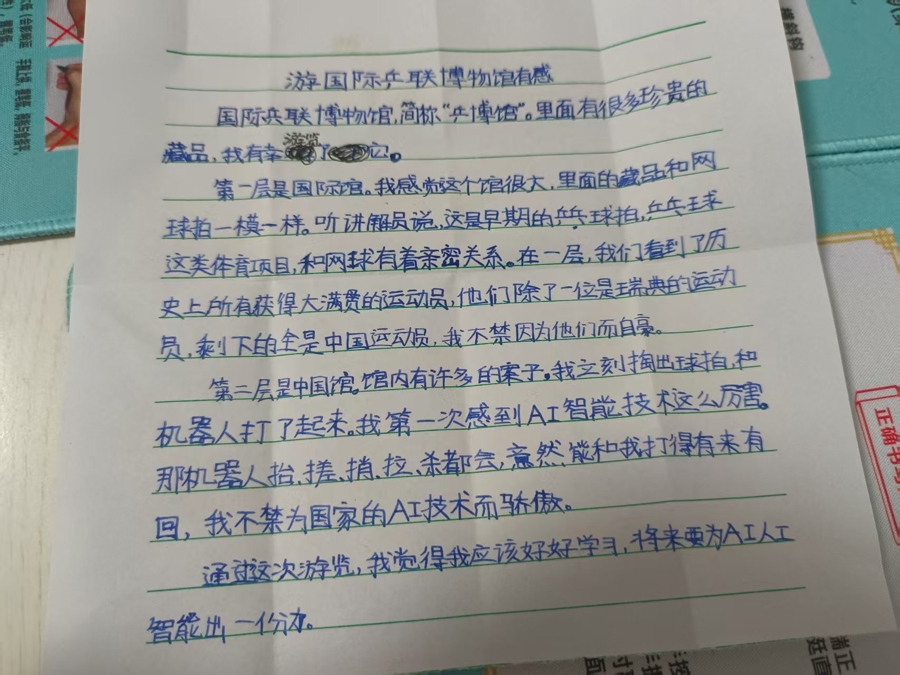 游国际乒联博物馆有感
国际乒联博物馆,简称“乒博馆”。里面有很多珍贵的
藏品,我有幸游览了它。
第一层是国际馆。我感觉这个馆很大,里面的藏品和网
球拍一模一样。听讲解员说,这是早期的乒乓球拍,乒乓球
这类体育项目,和网球有着亲密关系。在一层,我们看到了历
史上所有获得大满贯的运动员,他们除了一位是瑞典的运动
员,剩下的全是中国运动员,我不禁因为他们而自豪。
第二层是中国馆。馆内有许多的案子。我立刻掏出球拍,和
机器人打了起来。我第一次感到AI智能技术这么厉害。
那机器人抬、搓、捎、拉、杀都会,竟然能和我打得有来有
回,我不禁为国家的AI技术而骄傲。
通过这次游览,我觉得我应该好好学习,将来要为AI人工
智能出一份力。
正确书写